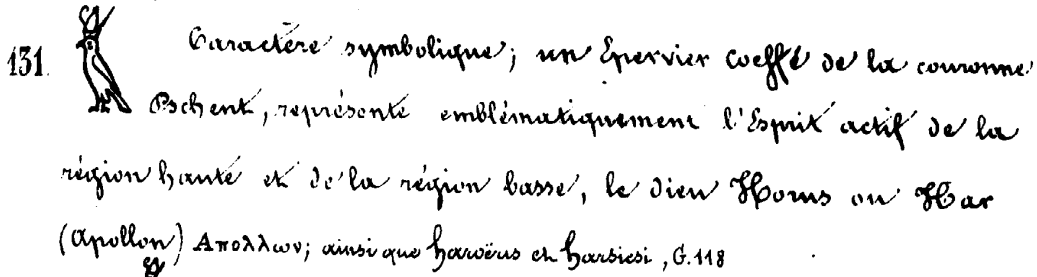 131. Caractère symbolique; un Epervier coeffé de la couronne
Pschent, représente emblématiquement l'Esprit actif de la
région haute et de la région basse, le dieu Horus ou Har
(Apollon) Απολλων; ainsi que haroëris et harsiesi, G. 118